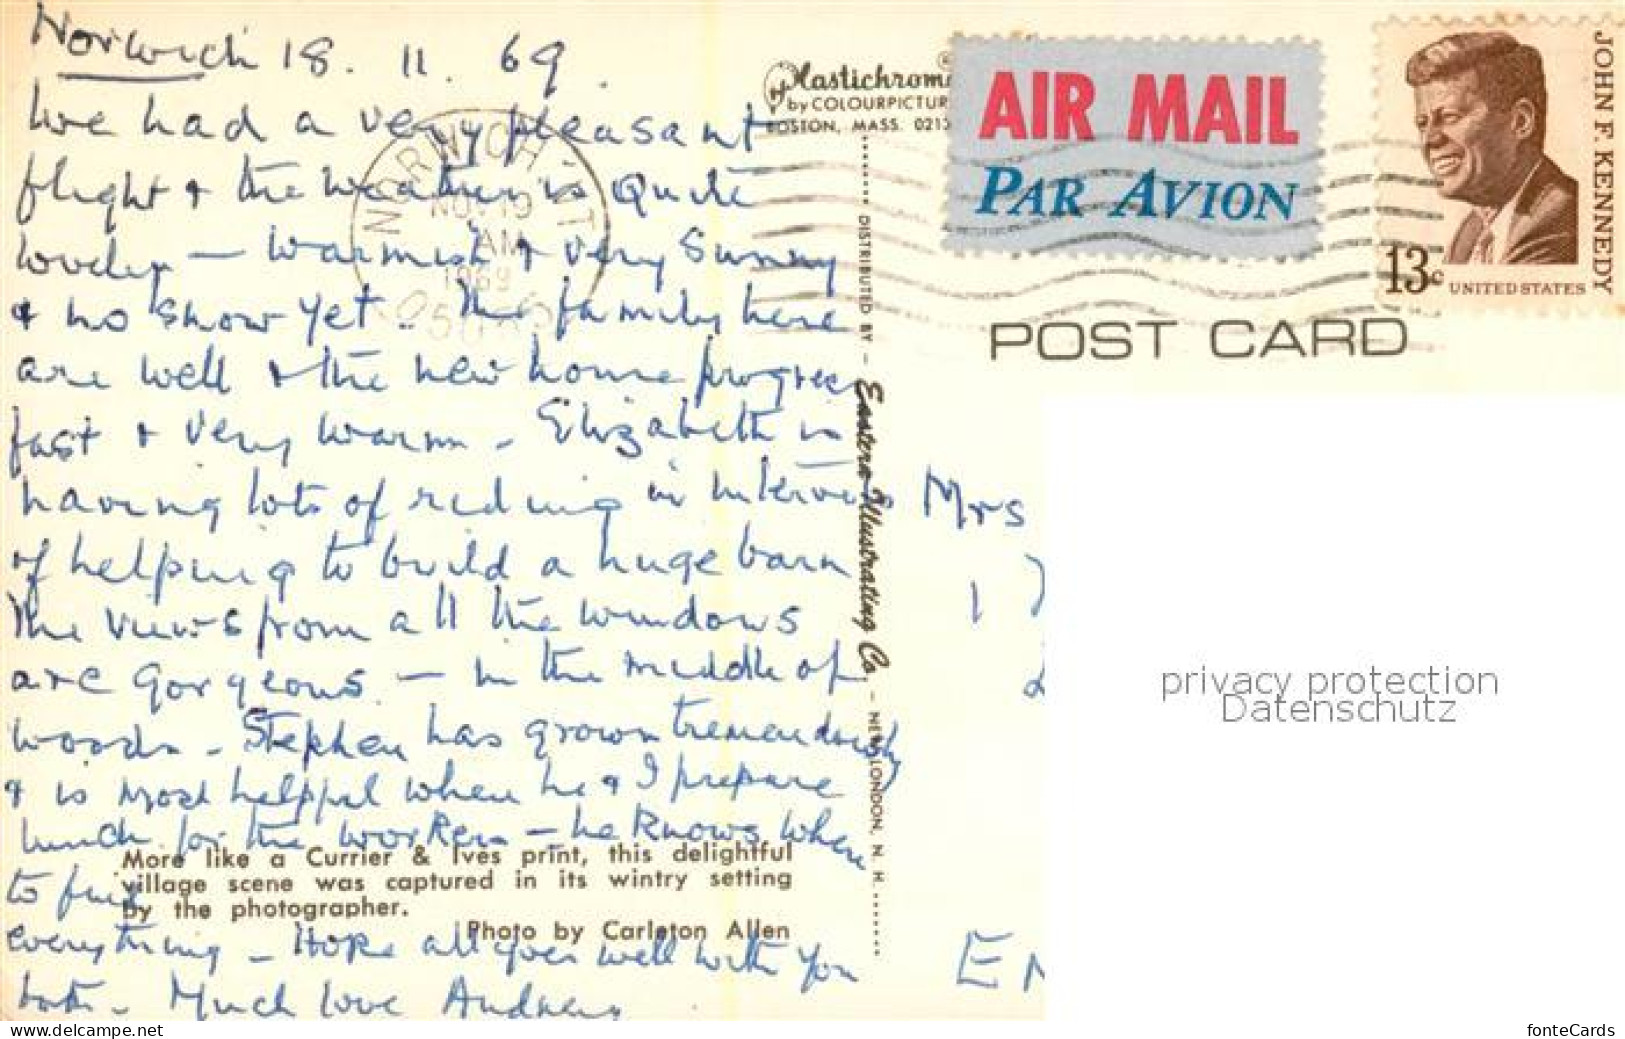 Norwich 18. 11. 69.
We had a very pleasant
flight & the weather is quite
lovely — warmish & very sunny
& no snow yet. The family here
are well & the new home progress
fast & very warm - Elizabeth is
having lots of riding in intervals
of helping to build a huge barn
The views from all the windows
are gorgeous — in the middle of
woods - Stephen has grown tremendously
& is most helpful when he & I prepare
lunch for the workers — he knows where
to find
everything - Hope all goes well with you
both - Much love
More like a Currier & Ives print, this delightful
village scene was captured in its wintry setting
by the photographer.
Photo by Carleton Allen
NORWICH VT
NOV 19
AM
1969
Plastichrome ®
by COLOURPICTUR
BOSTON, MASS. 0213
DISTRIBUTED BY — Eastern Illustrating Co. — NEW LONDON, N. H.
AIR MAIL
PAR AVION
JOHN F. KENNEDY
13c UNITED STATES
POST CARD
Mrs
1
EN
privacy protection
Datenschutz
www.delcampe.net
fonteCards